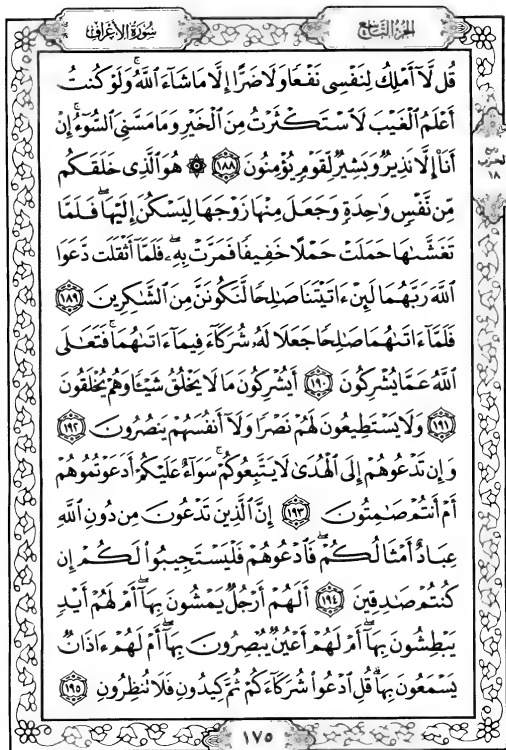 سُورَةُ الأَعْرَافِ الجُزْءُ التَّاسِعُ
قُل لَّآ أَمْلِكُ لِنَفْسِى نَفْعًا وَلَا ضَرًّا إِلَّا مَا شَآءَ ٱللَّهُ ۚ وَلَوْ كُنتُ
أَعْلَمُ ٱلْغَيْبَ لَٱسْتَكْثَرْتُ مِنَ ٱلْخَيْرِ وَمَا مَسَّنِىَ ٱلسُّوٓءُ ۚ إِنْ
أَنَا۠ إِلَّا نَذِيرٌ وَبَشِيرٌ لِّقَوْمٍ يُؤْمِنُونَ ١٨٨ ۞ هُوَ ٱلَّذِى خَلَقَكُم
مِّن نَّفْسٍ وَٰحِدَةٍ وَجَعَلَ مِنْهَا زَوْجَهَا لِيَسْكُنَ إِلَيْهَا ۖ فَلَمَّا
تَغَشَّىٰهَا حَمَلَتْ حَمْلًا خَفِيفًا فَمَرَّتْ بِهِۦ ۖ فَلَمَّآ أَثْقَلَت دَّعَوَا
ٱللَّهَ رَبَّهُمَا لَئِنْ ءَاتَيْتَنَا صَٰلِحًا لَّنَكُونَنَّ مِنَ ٱلشَّٰكِرِينَ ١٨٩
فَلَمَّآ ءَاتَىٰهُمَا صَٰلِحًا جَعَلَا لَهُۥ شُرَكَآءَ فِيمَآ ءَاتَىٰهُمَا ۚ فَتَعَٰلَى
ٱللَّهُ عَمَّا يُشْرِكُونَ ١٩٠ أَيُشْرِكُونَ مَا لَا يَخْلُقُ شَيْـًٔا وَهُمْ يُخْلَقُونَ
١٩١ وَلَا يَسْتَطِيعُونَ لَهُمْ نَصْرًا وَلَآ أَنفُسَهُمْ يَنصُرُونَ ١٩٢
وَإِن تَدْعُوهُمْ إِلَى ٱلْهُدَىٰ لَا يَتَّبِعُوكُمْ ۚ سَوَآءٌ عَلَيْكُمْ أَدَعَوْتُمُوهُمْ
أَمْ أَنتُمْ صَٰمِتُونَ ١٩٣ إِنَّ ٱلَّذِينَ تَدْعُونَ مِن دُونِ ٱللَّهِ
عِبَادٌ أَمْثَالُكُمْ ۖ فَٱدْعُوهُمْ فَلْيَسْتَجِيبُوا۟ لَكُمْ إِن
كُنتُمْ صَٰدِقِينَ ١٩٤ أَلَهُمْ أَرْجُلٌ يَمْشُونَ بِهَآ ۖ أَمْ لَهُمْ أَيْدٍ
يَبْطِشُونَ بِهَآ ۖ أَمْ لَهُمْ أَعْيُنٌ يُبْصِرُونَ بِهَآ ۖ أَمْ لَهُمْ ءَاذَانٌ
يَسْمَعُونَ بِهَا ۗ قُلِ ٱدْعُوا۟ شُرَكَآءَكُمْ ثُمَّ كِيدُونِ فَلَا تُنظِرُونِ ١٩٥
ربع
الحزب
١٨
١٧٥